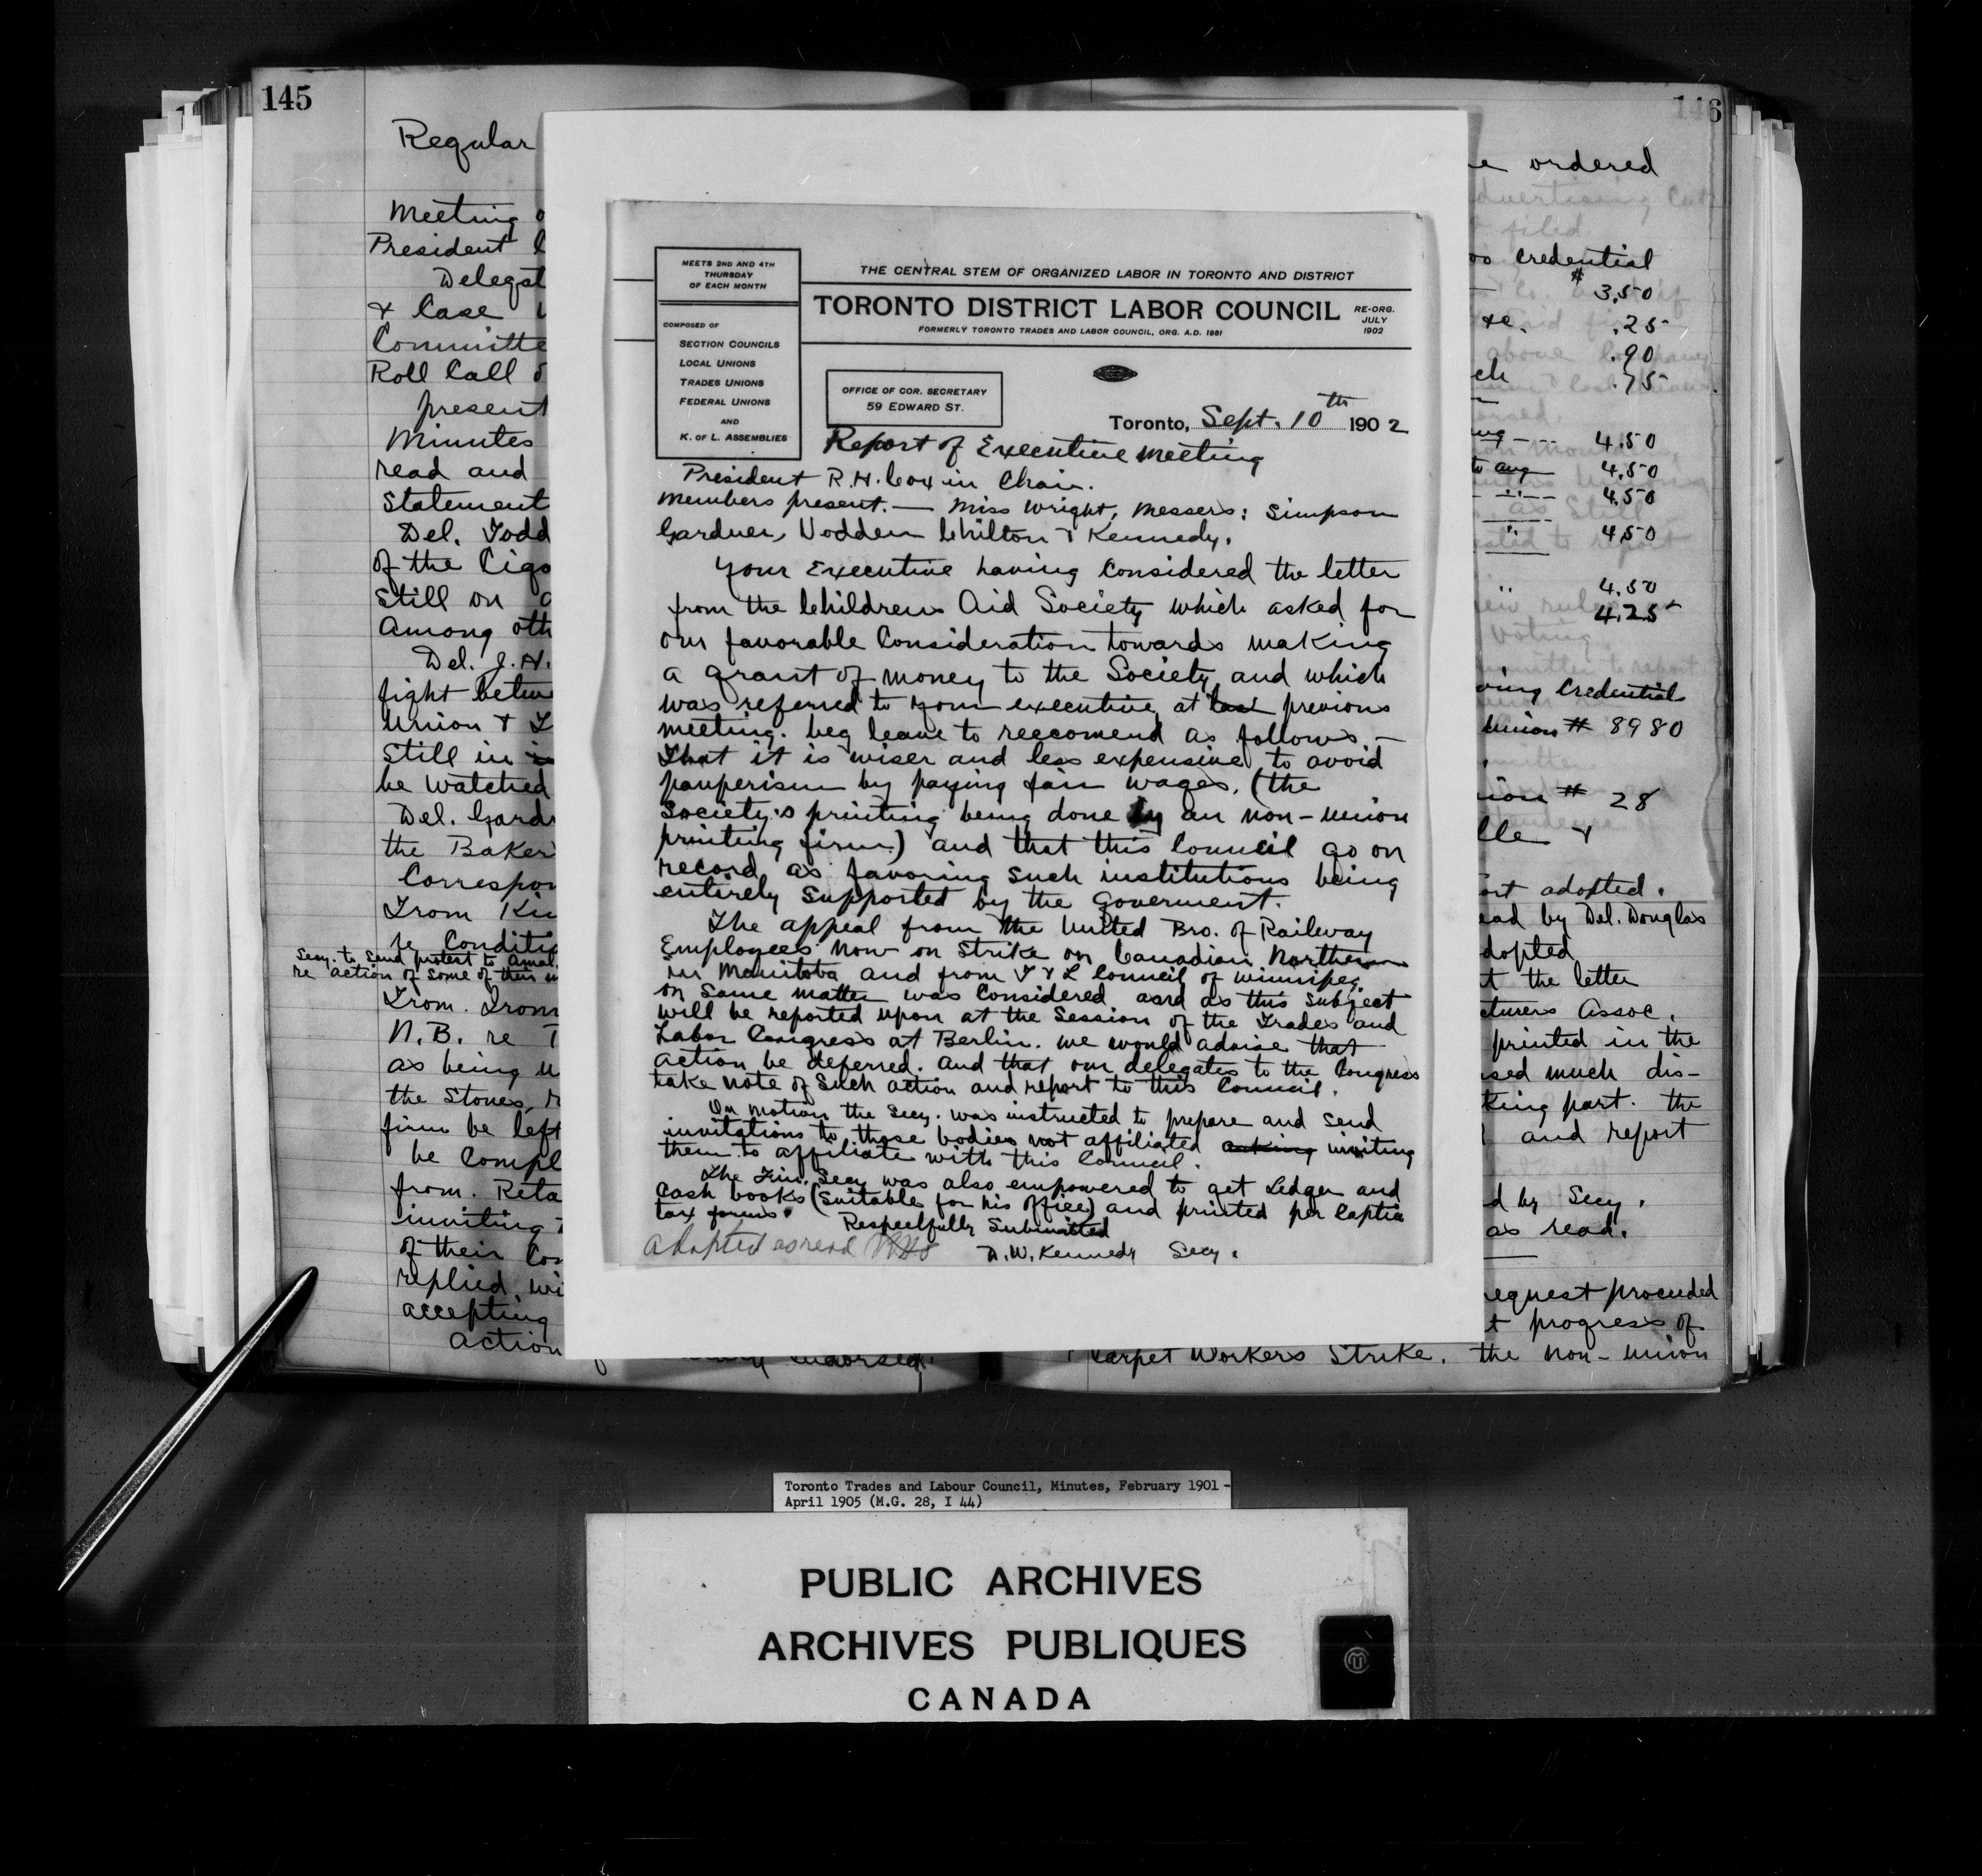 145
Regular
Meeting
President
Delegat
& Case
Committe
Roll Call
present
Minutes
read and
Statement
Del. Todd
of the Cigo
Still on
Among oth
Del. J.H.
fight betwe
Union & L
Still in
be watched
Del. Gard
the Baker
Correspon
From Kin
re Conditio
Secy. to send protest to Amal
re action of some of their m
From. Iron
N.B. re T
as being u
the Stoves, r
firm be left
be compl
from. Reta
inviting
of their Con
replied wi
accepting
action
endorsed.
MEETS 2ND AND 4TH
THURSDAY
OF EACH MONTH
COMPOSED OF
SECTION COUNCILS
LOCAL UNIONS
TRADES UNIONS
FEDERAL UNIONS
AND
K. OF L. ASSEMBLIES
THE CENTRAL STEM OF ORGANIZED LABOR IN TORONTO AND DISTRICT
TORONTO DISTRICT LABOR COUNCIL
RE-ORG.
JULY
1902
FORMERLY TORONTO TRADES AND LABOR COUNCIL, ORG. A.D. 1881
OFFICE OF COR. SECRETARY
59 EDWARD ST.
Toronto, Sept. 10th 1902
Report of Executive Meeting
President R.H. Cox in Chair.
Members present. — Miss Wright, Messers: Simpson
Gardner, Vodden Chilton & Kennedy.
Your Executive having Considered the letter
from the Childrens Aid Society which asked for
our favorable Consideration towards making
a grant of money to the Society and which
was referred to your executive at last previous
meeting. beg leave to reecomend as follows. —
That it is wiser and less expensive to avoid
pauperism by paying fair wages, (the
Society's printing being done by an non-union
printing firm) and that this Council go on
record as favoring such institutions being
entirely supported by the Goverment.
The appeal from the United Bro. of Railway
Employees now on Strike on Canadian Northern
in Manitoba and from T & L Council of Winnipeg.
on same matter was Considered and as this subject
will be reported upon at the Session of the Trades and
Labor Congress at Berlin. we would advise that
action be deferred. And that our delegates to the Congress
take note of such action and report to this Council.
On motion the Secy. was instructed to prepare and send
invitations to those bodies not affiliated asking inviting
them to affiliate with this Council.
The Fin. Secy was also empowered to get Ledger and
Cash books (suitable for his office) and printed per Capita
tax forms.
Respectfully Submitted
D.W. Kennedy Secy.
adopted as read
146
ordered
credential
# 3.50
.25
.90
.75
4.50
to aug 4.50
" 4.50
" 4.50
" 4.50
4.25
Credential
Union # 8980
# 28
&
adopted.
by Del. Douglas
adopted
the letter
Assoc.
printed in the
much dis-
part. the
and report
by Secy.
as read.
request proceeded
progress of
Carpet Workers Strike. the non-union
Toronto Trades and Labour Council, Minutes, February 1901 -
April 1905 (M.G. 28, I 44)
PUBLIC ARCHIVES
ARCHIVES PUBLIQUES
CANADA